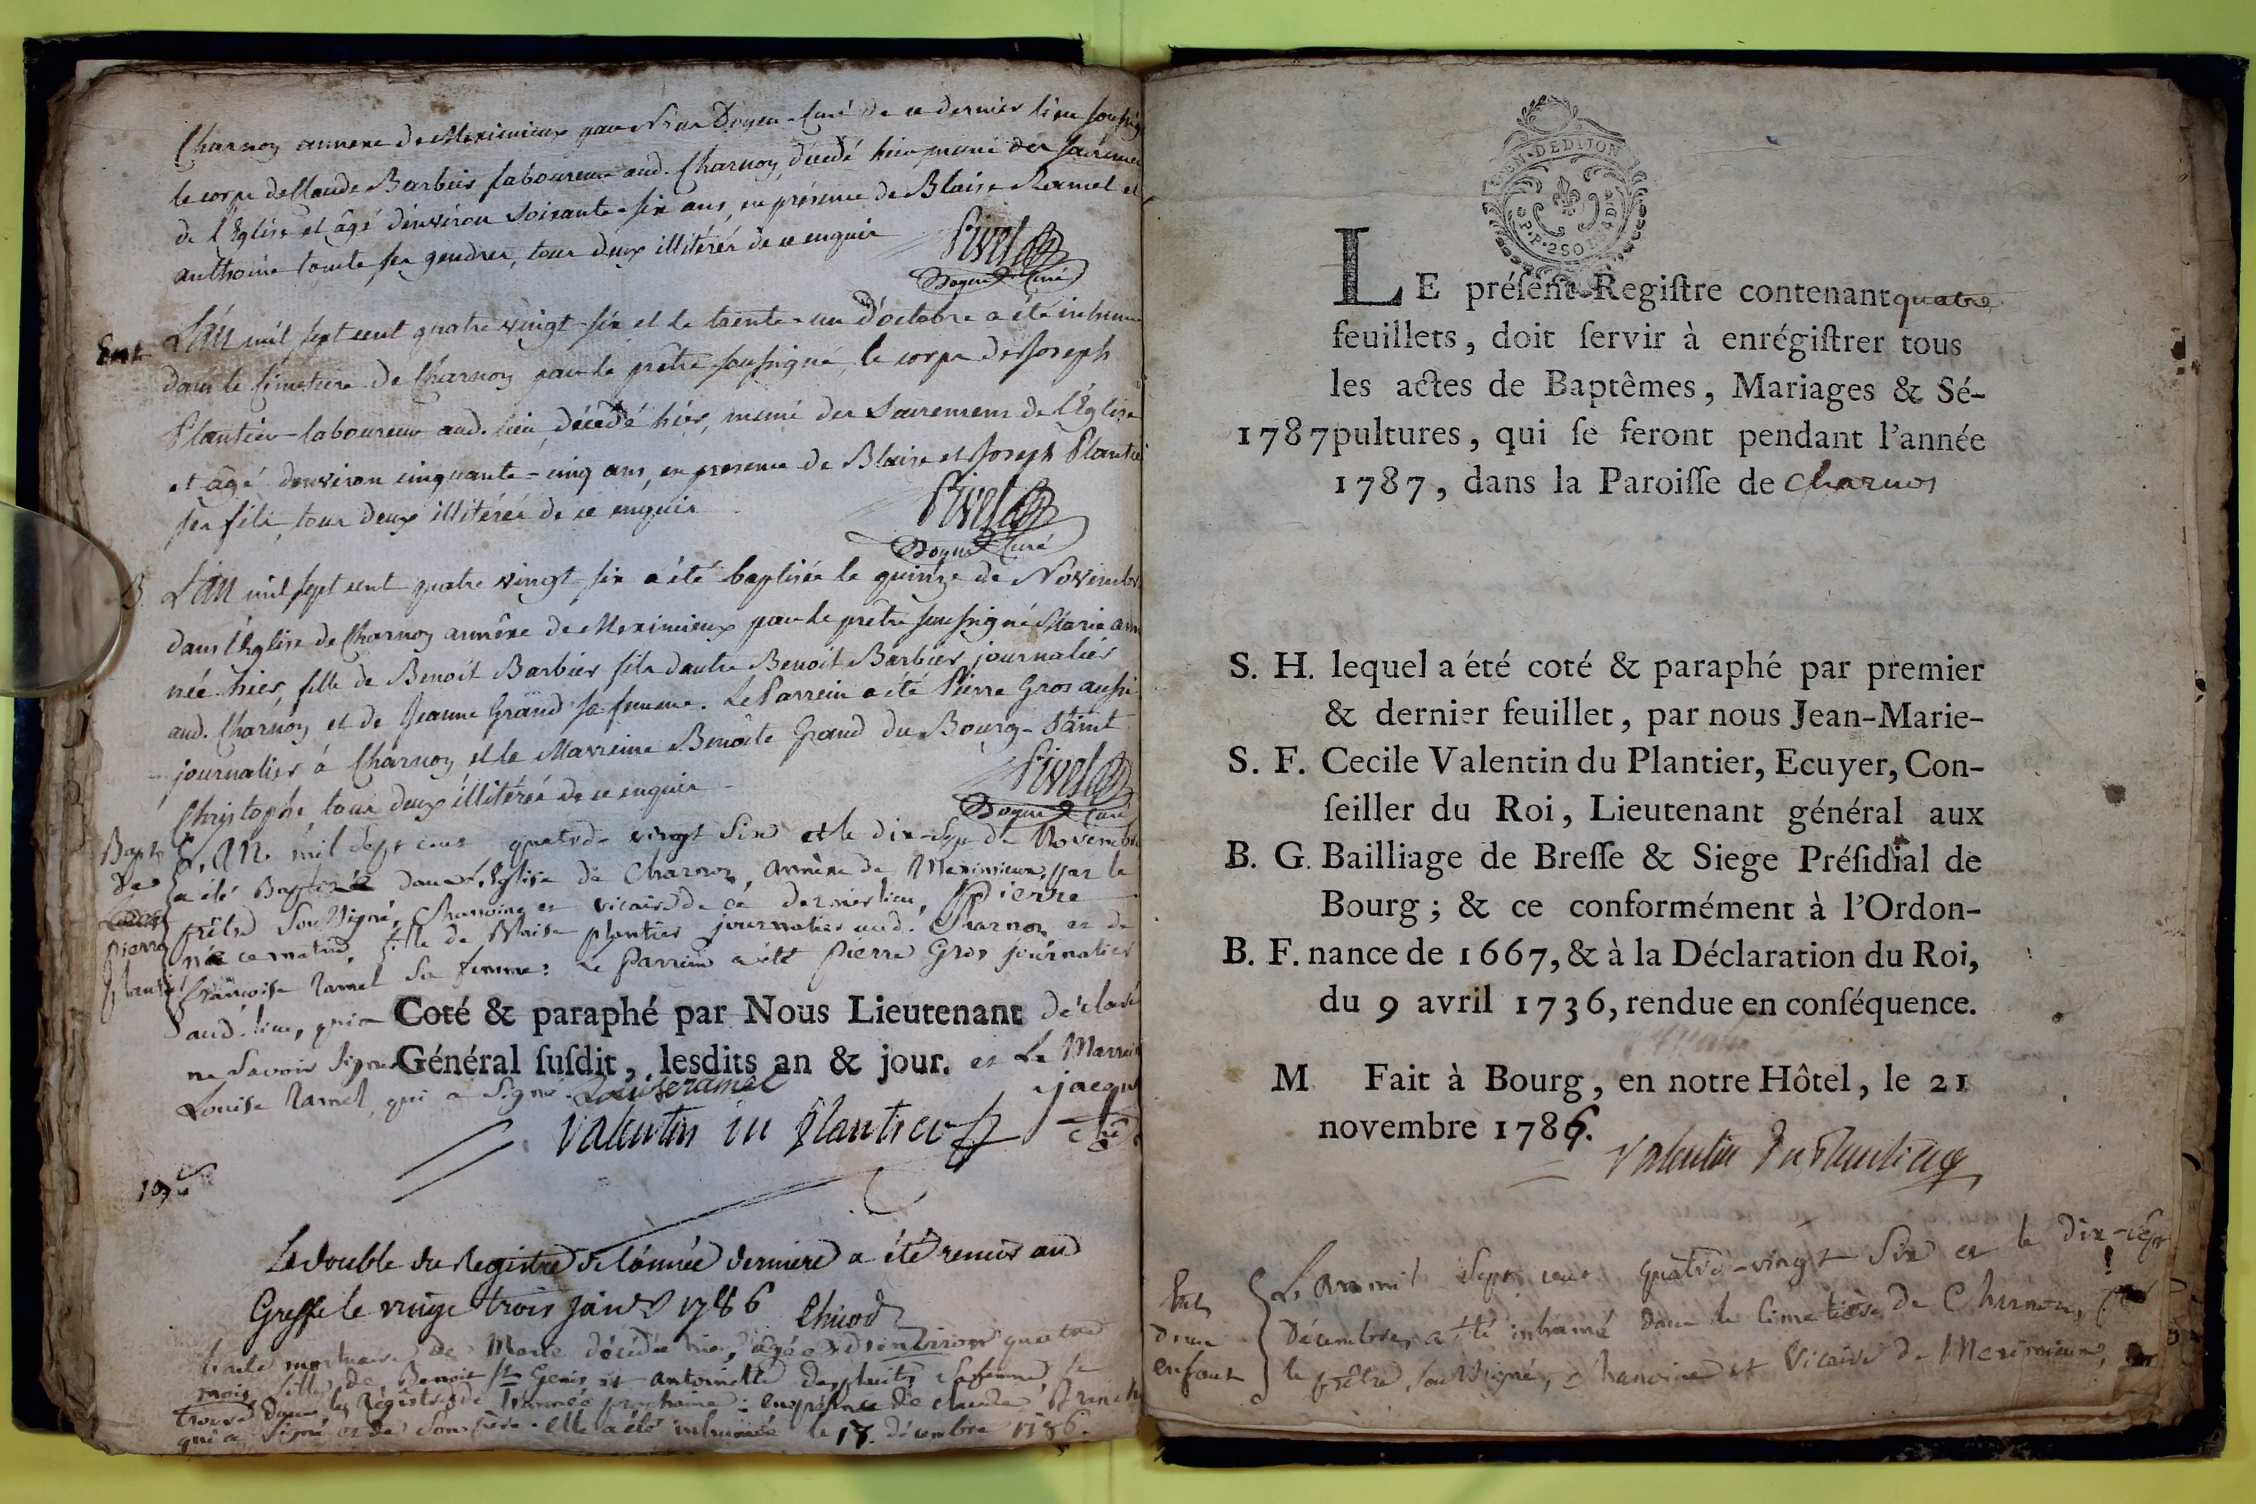 Charnoz annexe de Meximieux par Nous Doyen Curé de ce dernier lieu soussigné
le corps de Claude Barbier laboureur aud. Charnoz, décédé hier muni des sacremens
de l'Eglise et âgé d'environ soixante-six ans, en présence de Blaise Ramel et
anthoine Comte ses gendres, tous deux illitérés de ce enquis
Pivet
Doyen Curé
Ent.
L'an mil sept cent quatre vingt-six et le trente-un d'octobre a été inhumé
dans le cimetiere de Charnoz par le prêtre soussigné, le corps de Joseph
Plantier laboureur aud. lieu, décédé hier, muni des Sacremens de l'Eglise
et âgé d'environ cinquante-cinq ans, en presence de Blaise et Joseph Plantier
ses fils, tous deux illitérés de ce enquis
Pivet
Doyen Curé
B.
L'an mil sept cent quatre vingt-six a été baptisée le quinze de Novembre
dans l'Eglise de Charnoz annêxe de Meximieux par le prêtre soussigné Marie ann
née hier, fille de Benoit Barbier fils d'autre Benoit Barbier journalier
aud. Charnoz et de Jeanne Grand sa femme. Le Parrein a été Pierre Gros aussi
journalier à Charnoz et la Marreine Benoîte Grand du Bourg-Saint
Christophe, tous deux illitérés de ce enquis
Pivet
Doyen Curé
Bapt.
de
pierre
plantier
L'an mil sept cent quatre vingt six et le dix-sept de Novembre
a été Baptisé dans l'Eglise de Charnoz, annêxe de Meximieux, par le
prêtre Soussigné, Chanoine et vicaire de ce dernier lieu, pierre
né ce matin, fille de Blaise plantier journalier aud. Charnoz et de
françoise Ramel sa femme: Le Parrein a été pierre Gros journalier
aud. lieu, qui a déclaré
Coté & paraphé par Nous Lieutenant
Général susdit, lesdits an & jour.
ne Savoir Signer et La Marreine
Louise Ramel, qui a Signé. Louise ramel
jacqu
Valentin du Plantier
Le double du Registre de l'année derniere a été remis au
Greffe le vingt trois janv. 1786
l'acte mortuaire de Marie décédée hier, âgée d'environ quatre
mois fille de Benoit St Genis et antoinette desplantes sa femme se
trouve dans les Régistres de l'année prochaine: en présence de claude
qui a signé et de Son pere. elle a été inhumée le 18. décembre 1786.
GEN. DE DIJON
P.P. 2 SO
LE présent Registre contenant quatre
feuillets, doit servir à enrégistrer tous
les actes de Baptêmes, Mariages & Sé-
1787 pultures, qui se feront pendant l'année
1787, dans la Paroisse de Charnos
S. H. lequel a été coté & paraphé par premier
& dernier feuillet, par nous Jean-Marie-
S. F. Cecile Valentin du Plantier, Ecuyer, Con-
seiller du Roi, Lieutenant général aux
B. G. Bailliage de Bresse & Siege Présidial de
Bourg; & ce conformément à l'Ordon-
B. F. nance de 1667, & à la Déclaration du Roi,
du 9 avril 1736, rendue en conséquence.
M Fait à Bourg, en notre Hôtel, le 21
novembre 1786.
Valentin du Plantier
Ent.
d'un
enfant
L'an mil Sept cent quatre-vingt Six et le dix-sept
décembre, a été inhumé dans le cimetière de Charnoz, par
le prêtre Soussigné, Chanoine et Vicaire de Meximieux,